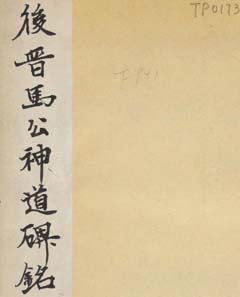 後晉馬公神道碑銘
TP0173